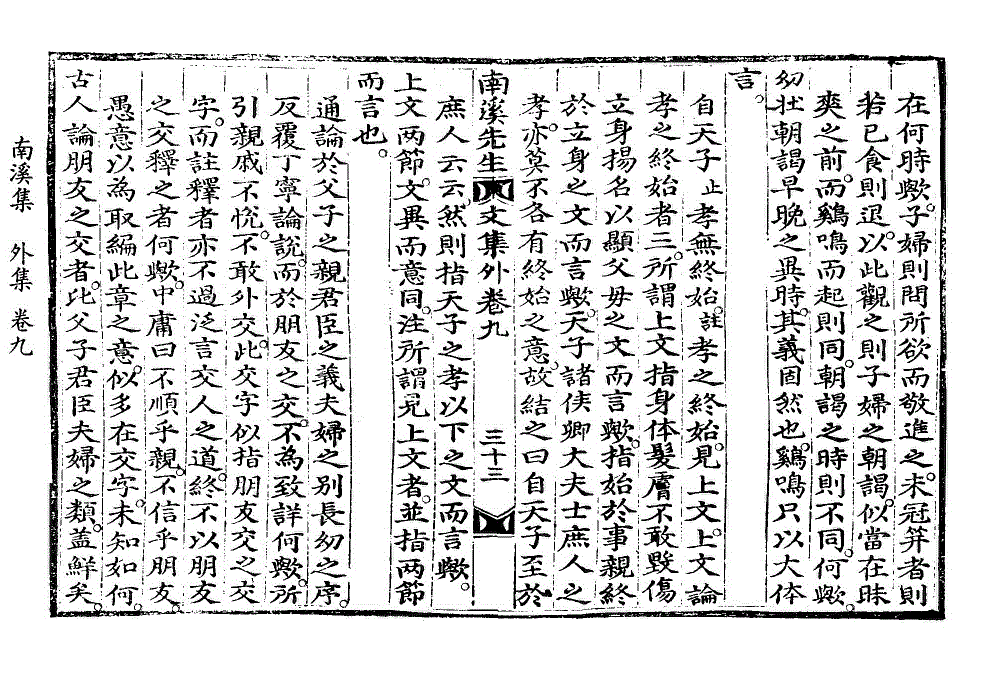 在何時歟。子婦則問所欲而敬進之。未冠笄者則
若已食則退。以此觀之則子婦之朝謁。似當在昧
爽之前。而鷄鳴而起則同。朝謁之時則不同。何歟。
幼壮朝謁早晩之異時。其義固然也。鷄鳴只以大体
言。
自天子 止 孝無終始。註 孝之終始。見上文。上文論
孝之終始者三。所謂上文指身体髮膚不敢毁傷
立身揚名以顯父母之文而言歟。指始於事親終
於立身之文而言歟。天子諸侯卿大夫士庶人之
孝。亦莫不各有終始之意。故結之曰自天子至於
南溪先生文集外卷九 三十三
庶人云云。然則指天子之孝以下之文而言歟。
上文两節。文異而意同。注所謂見上文者。並指两節
而言也。
通論於父子之親君臣之義夫婦之别長幼之序。
反覆丁寧論說。而於朋友之交。不為致詳何歟。所
引親戚不悅。不敢外交。此交字似指朋友交之交
字。而註釋者亦不過泛言交人之道。終不以朋友
之交釋之者何歟。中庸曰不順乎親。不信乎朋友。
愚意以為取編此章之意。似多在交字。未知如何。
古人論朋友之交者。比父子君臣夫婦之類。盖鮮矣。
南溪集 外集 卷九